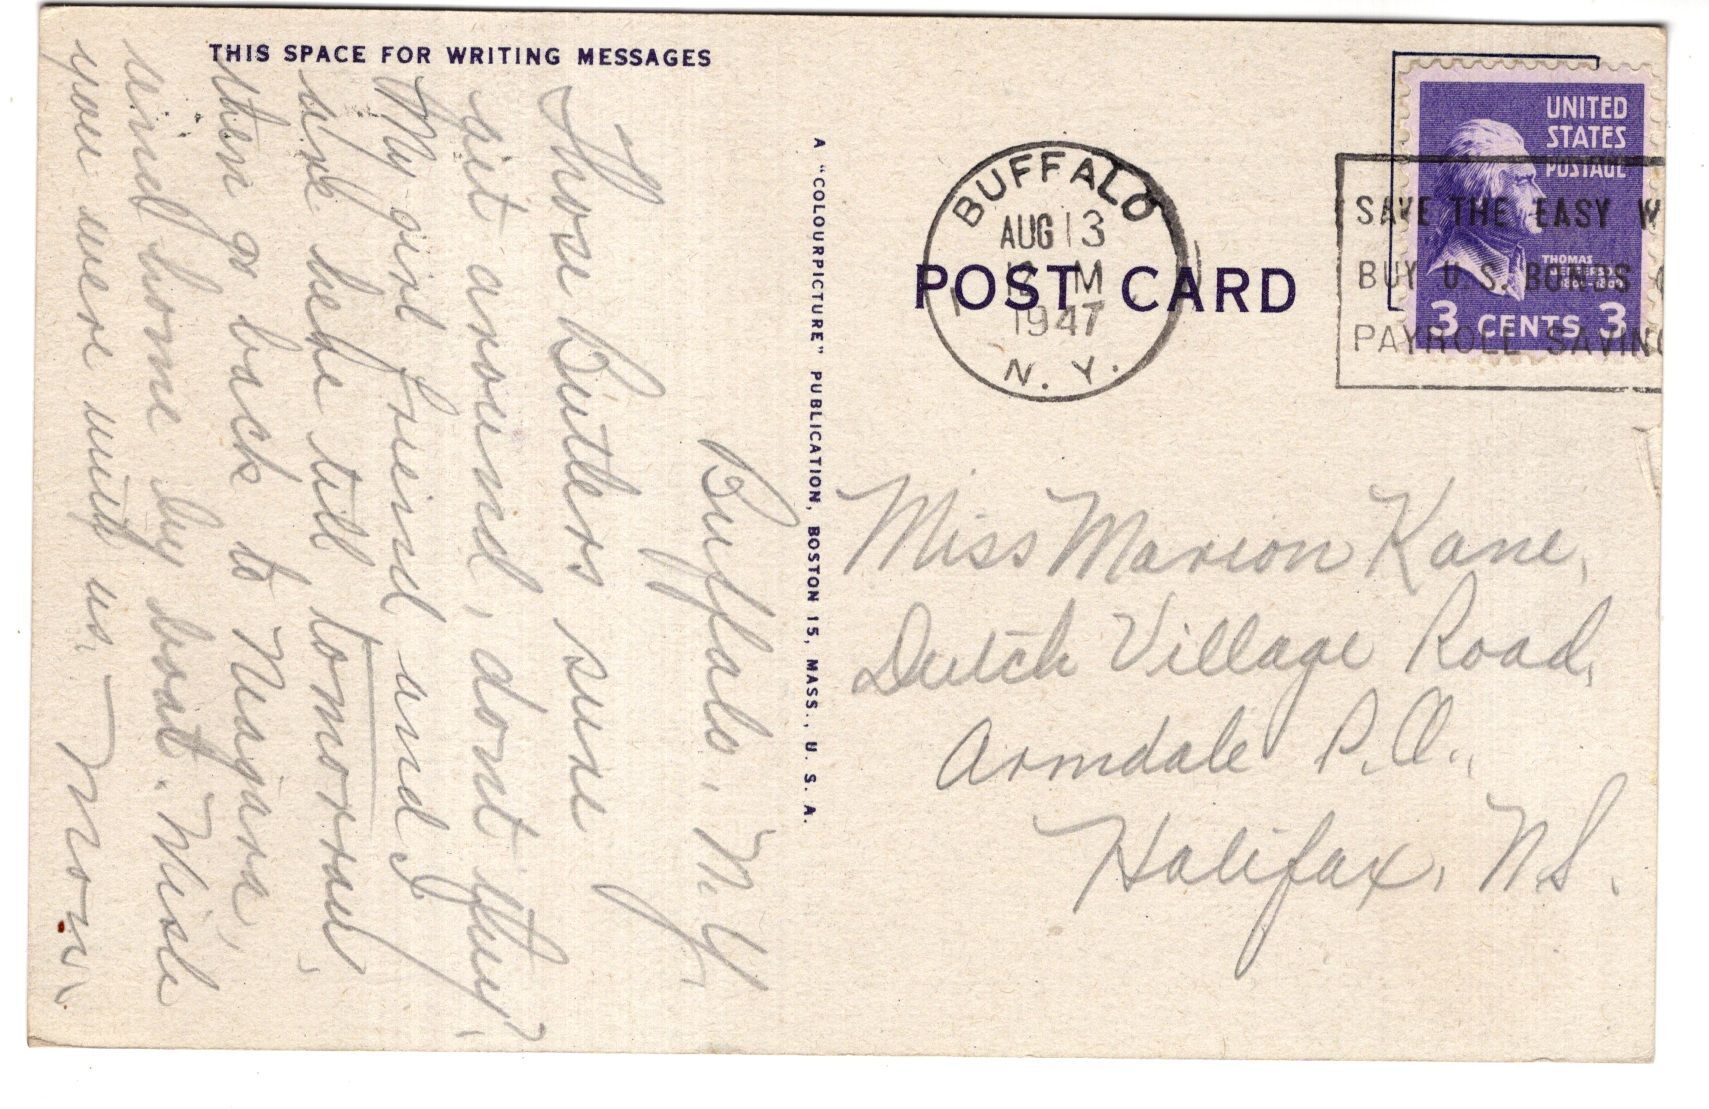 THIS SPACE FOR WRITING MESSAGES
Buffalo, N.Y.
Those Butlers sure
git around, dont they,
My girl freind and I
are here till tomorrow,
then go back to Niagara,
and home by boat. Wish
you were with us,
A "COLOURPICTURE" PUBLICATION, BOSTON 15, MASS., U. S. A.
POST CARD
BUFFALO
AUG 13
M
1947
N. Y.
UNITED
STATES
POSTAGE
THOMAS
JEFFERSON
1801-1809
3 CENTS 3
SAVE THE EASY W
BUY U.S. BONDS
PAYROLL SAVING
Miss Marion Kane,
Dutch Village Road,
Armdale P.O.,
Halifax, N.S.